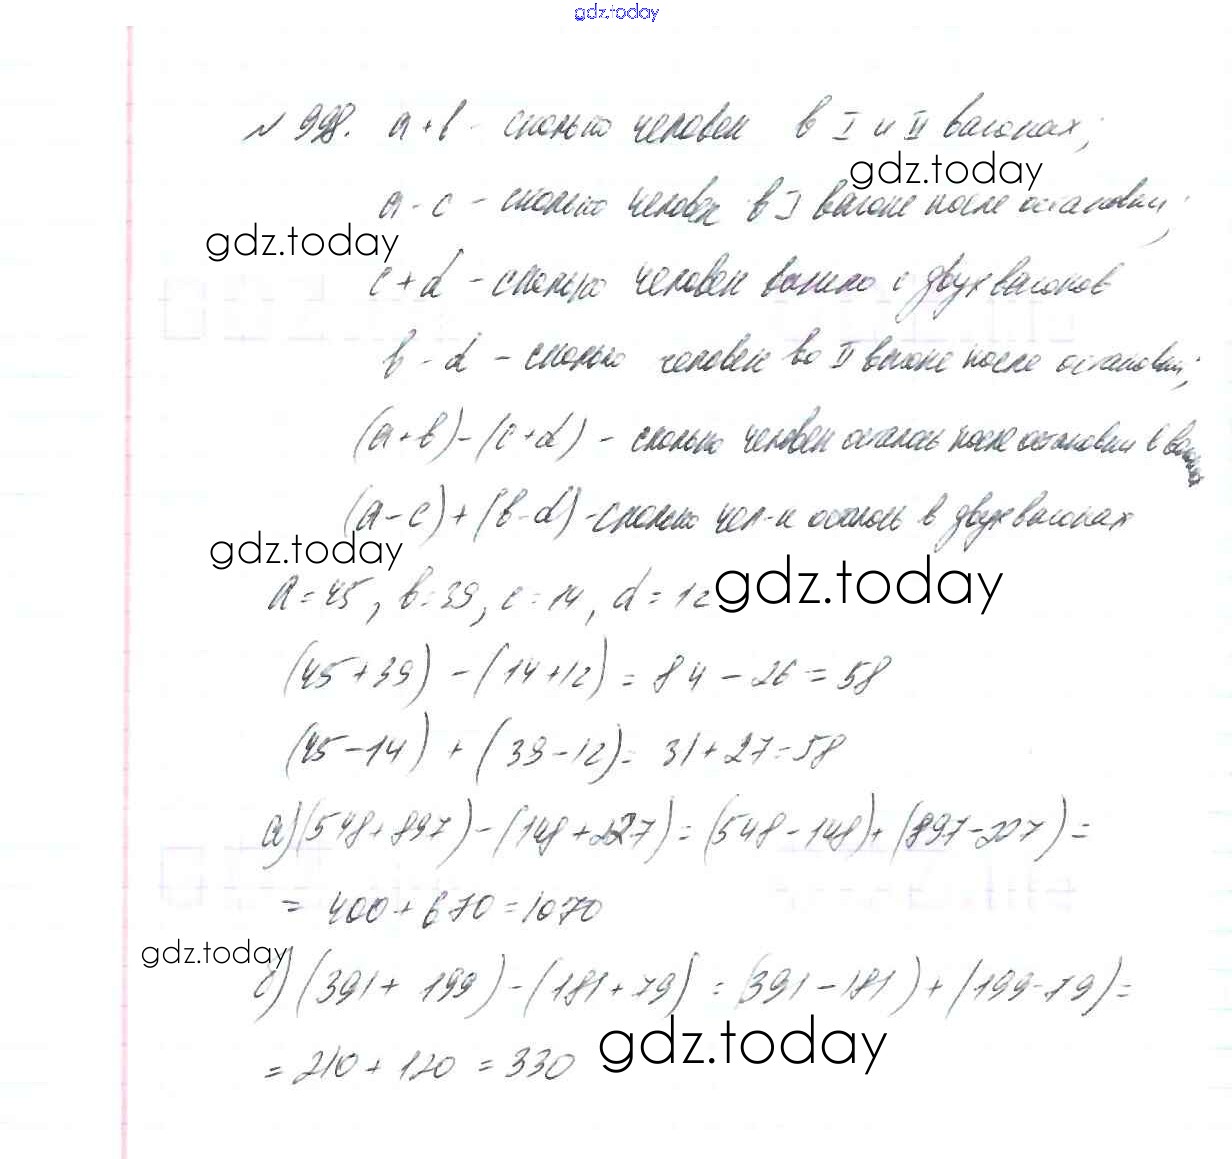 gdz.today
№ 998. a+b - сколько человек в I и II вагонах;
gdz.today
a - c - сколько человек в I вагоне после остановки;
gdz.today
c + d - сколько человек вышло с двух вагонов
b - d - сколько человек во II вагоне после остановки;
(a+b)-(c+d) - сколько человек осталось после остановки в вагонах
(a-c)+(b-d) - сколько чел-к осталось в двух вагонах
gdz.today
gdz.today
a=45, b=39, c=14, d=12
(45+39)-(14+12)=84-26=58
(45-14)+(39-12)=31+27=58
а)(548+897)-(148+227)=(548-148)+(897-227)=
= 400+670=1070
gdz.today
б)(391+199)-(181+79)=(391-181)+(199-79)=
= 210+120=330
gdz.today